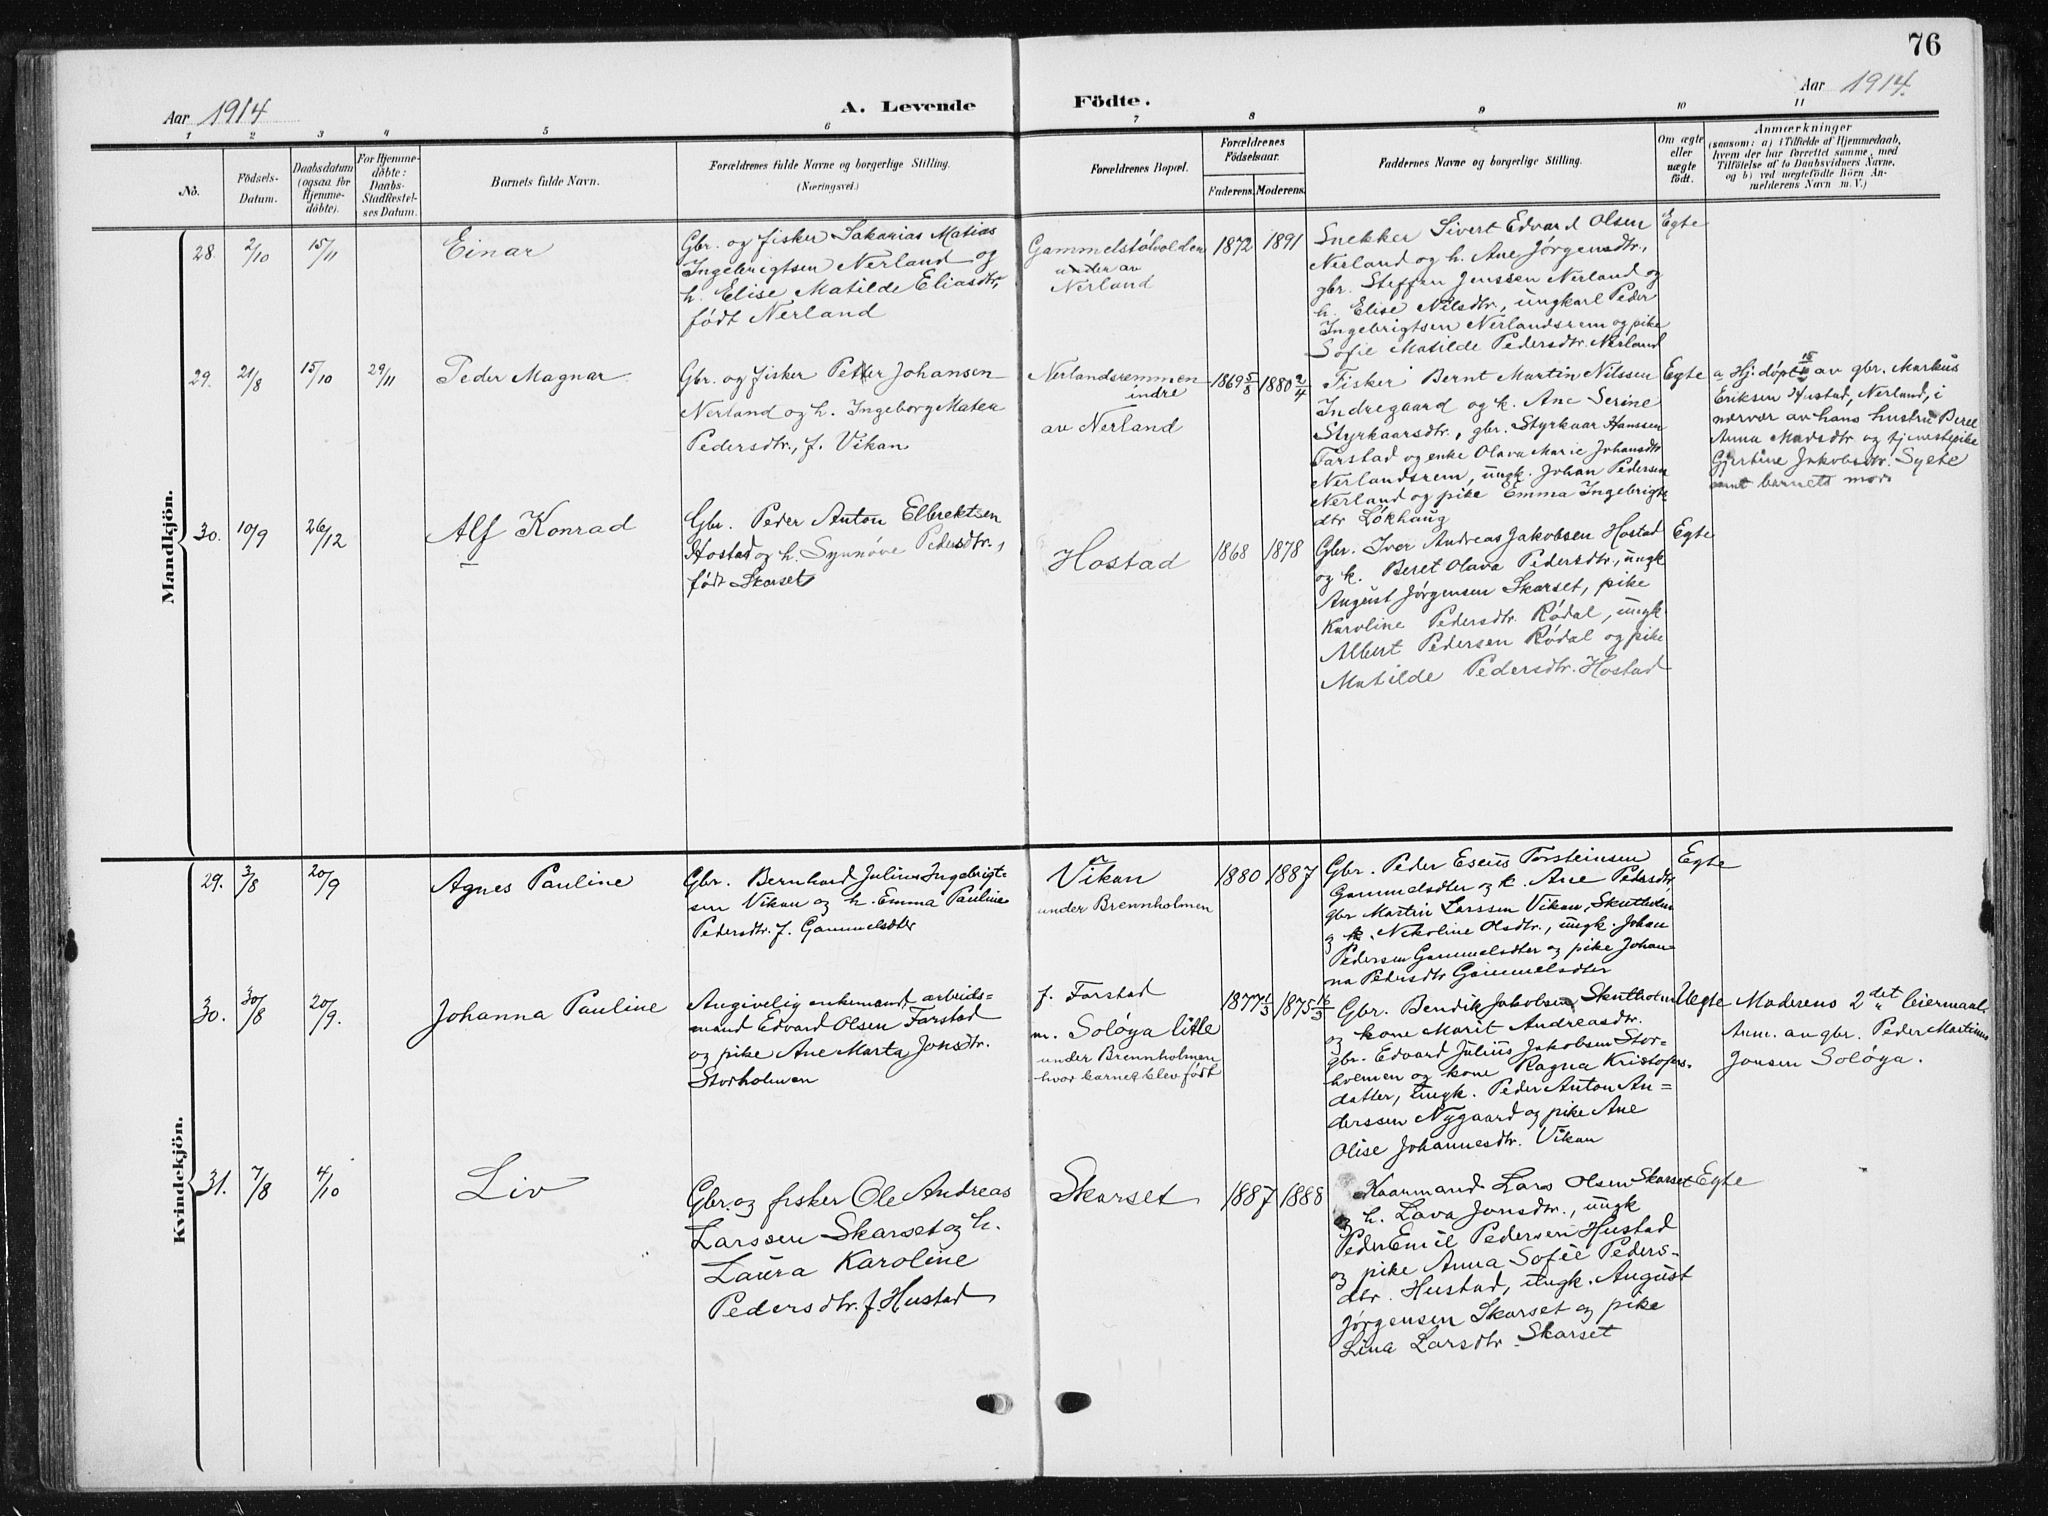 76
Aar 1914
A. Levende
Födte.
Aar 1914.
1 2 3 4 5 6 7 8 9 10 11
No.
Födsels-
Datum.
Daabsdatum
(ogsaa for
Hjemme-
döbte).
For Hjemme-
döbte:
Daabs-
Stadfæstel-
ses Datum.
Barnets fulde Navn.
Forældrenes fulde Navne og borgerlige Stilling.
(Næringsvei.)
Forældrenes Bopæl.
Forældrenes
Födselsaar.
Faderens. Moderens.
Faddernes Navne og borgerlige Stilling.
Om ægte
eller
uægte
födt.
Anmærkninger
(saasom: a) i Tilfælde af Hjemmedaab,
hvem der har forrettet samme, med
Tilföielse af to Daabsvidners Navne,
og b) ved uægtefödte Börn An-
melderens Navn m. V.)
Mandkjön.
28. 2/10 15/11
Einar
Gbr. og fisker Sakarias Matias
Ingebrigtsen Nerland og
h. Elise Matilde Eliasdtr,
født Nerland
Gammelstølvolden
under av
Nerland
1872 1891
Snekker Sivert Edvard Olsen
Nerland og h. Ane Jørgensdtr,
gbr. Steffen Jenssen Nerland og
h. Elise Nilsdtr, ungkarl Peder
Ingebrigtsen Nerlandsrem og pike
Sofie Matilde Pedersdtr. Nerland
Egte
29. 21/8 15/10 29/11
Peder Magnar
Gbr. og fisker Petter Johansen
Nerland og h. Ingeborg Matea
Pedersdtr., f. Vikan
Nerlandsremmen
indre
av Nerland
1869 5/8 1880 2/4
Fisker Bernt Martin Nilssen
Indregaard og k. Ane Serine
Styrkaarsdtr, gbr. Styrkaar Hanssen
Farstad og enke Olava Marie Johansdtr
Nerlandsrem, ungk. Johan Pedersen
Nerland og pike Emma Ingebrigts-
dtr Løkhaug
Egte
a Hj. døpt 15/10 av gbr. Markus
Eriksen Hustad, Nerland, i
nærvær av hans hustru Beret
Anna Madsdtr og tjenestepike
Gjertine Jakobsdtr. Sylte
samt barnets mor
30. 10/9 26/12
Alf Konrad
Gbr. Peder Anton Elbrektsen
Hostad og h. Synnøve Pedersdtr.,
født Skarset
Hostad
1868 1878
Gbr. Iver Andreas Jakobsen Hostad
og k. Beret Olava Pedersdtr, ungk
August Jørgensen Skarset, pike
Karoline Pedersdtr. Rødal, ungk.
Albert Pedersen Rødal og pike
Matilde Pedersdtr. Hostad
Egte
Kvindekjön.
29. 3/8 20/9
Agnes Pauline
Gbr. Bernhard Julius Ingebrigt-
sen Vikan og h. Emma Pauline
Pedersdtr. f. Gammelsæter
Vikan
under Brennholmen
1880 1887
Gbr. Peder Eseus Torsteinsen
Gammelsæter og k. Ane Pedersdtr
gbr Martin Larssen Vikan, Skutholm
og k. Nekoline Olsdtr., ungk. Johan
Pedersen Gammelsæter og pike Johan-
na Pedersdtr Gammelsæter
Egte
30. 30/8 20/9.
Johanna Pauline
Angivelig enkemand arbeids-
mand Edvard Olsen Farstad
og pike Ane Marta Jonsdtr.
Storholmen
f. Farstad
m. Soløya litle
under Brennholmen
hvor barnet blev født
1877 1/3 1875 16/3
Gbr. Bendik Jakobsen Skutholm
og kone Marit Andreasdtr.
gbr. Edvard Julius Jakobsen Stor-
holmen og kone Ragna Kristofers-
datter, ungk. Peder Anton An-
derssen Nygaard og pike Ane
Olise Johannesdtr. Vikan
Uegte
Moderens 2det leiermaal.
Anm. av gbr. Peder Martinus
Jonsen Soløya.
31. 7/8 4/10
Liv
Gbr. og fisker Ole Andreas
Larssen Skarset og h.
Laura Karoline
Pedersdtr. f. Hustad
Skarset
1887 1888
Kaarmand Lars Olsen Skarset
og h. Lava Jonsdtr., ungk
Peder Emil Pedersen Hustad
og pike Anna Sofie Peders-
dtr. Hustad, ungk. August
Jørgensen Skarset og pike
Lina Larsdtr. Skarset
Egte